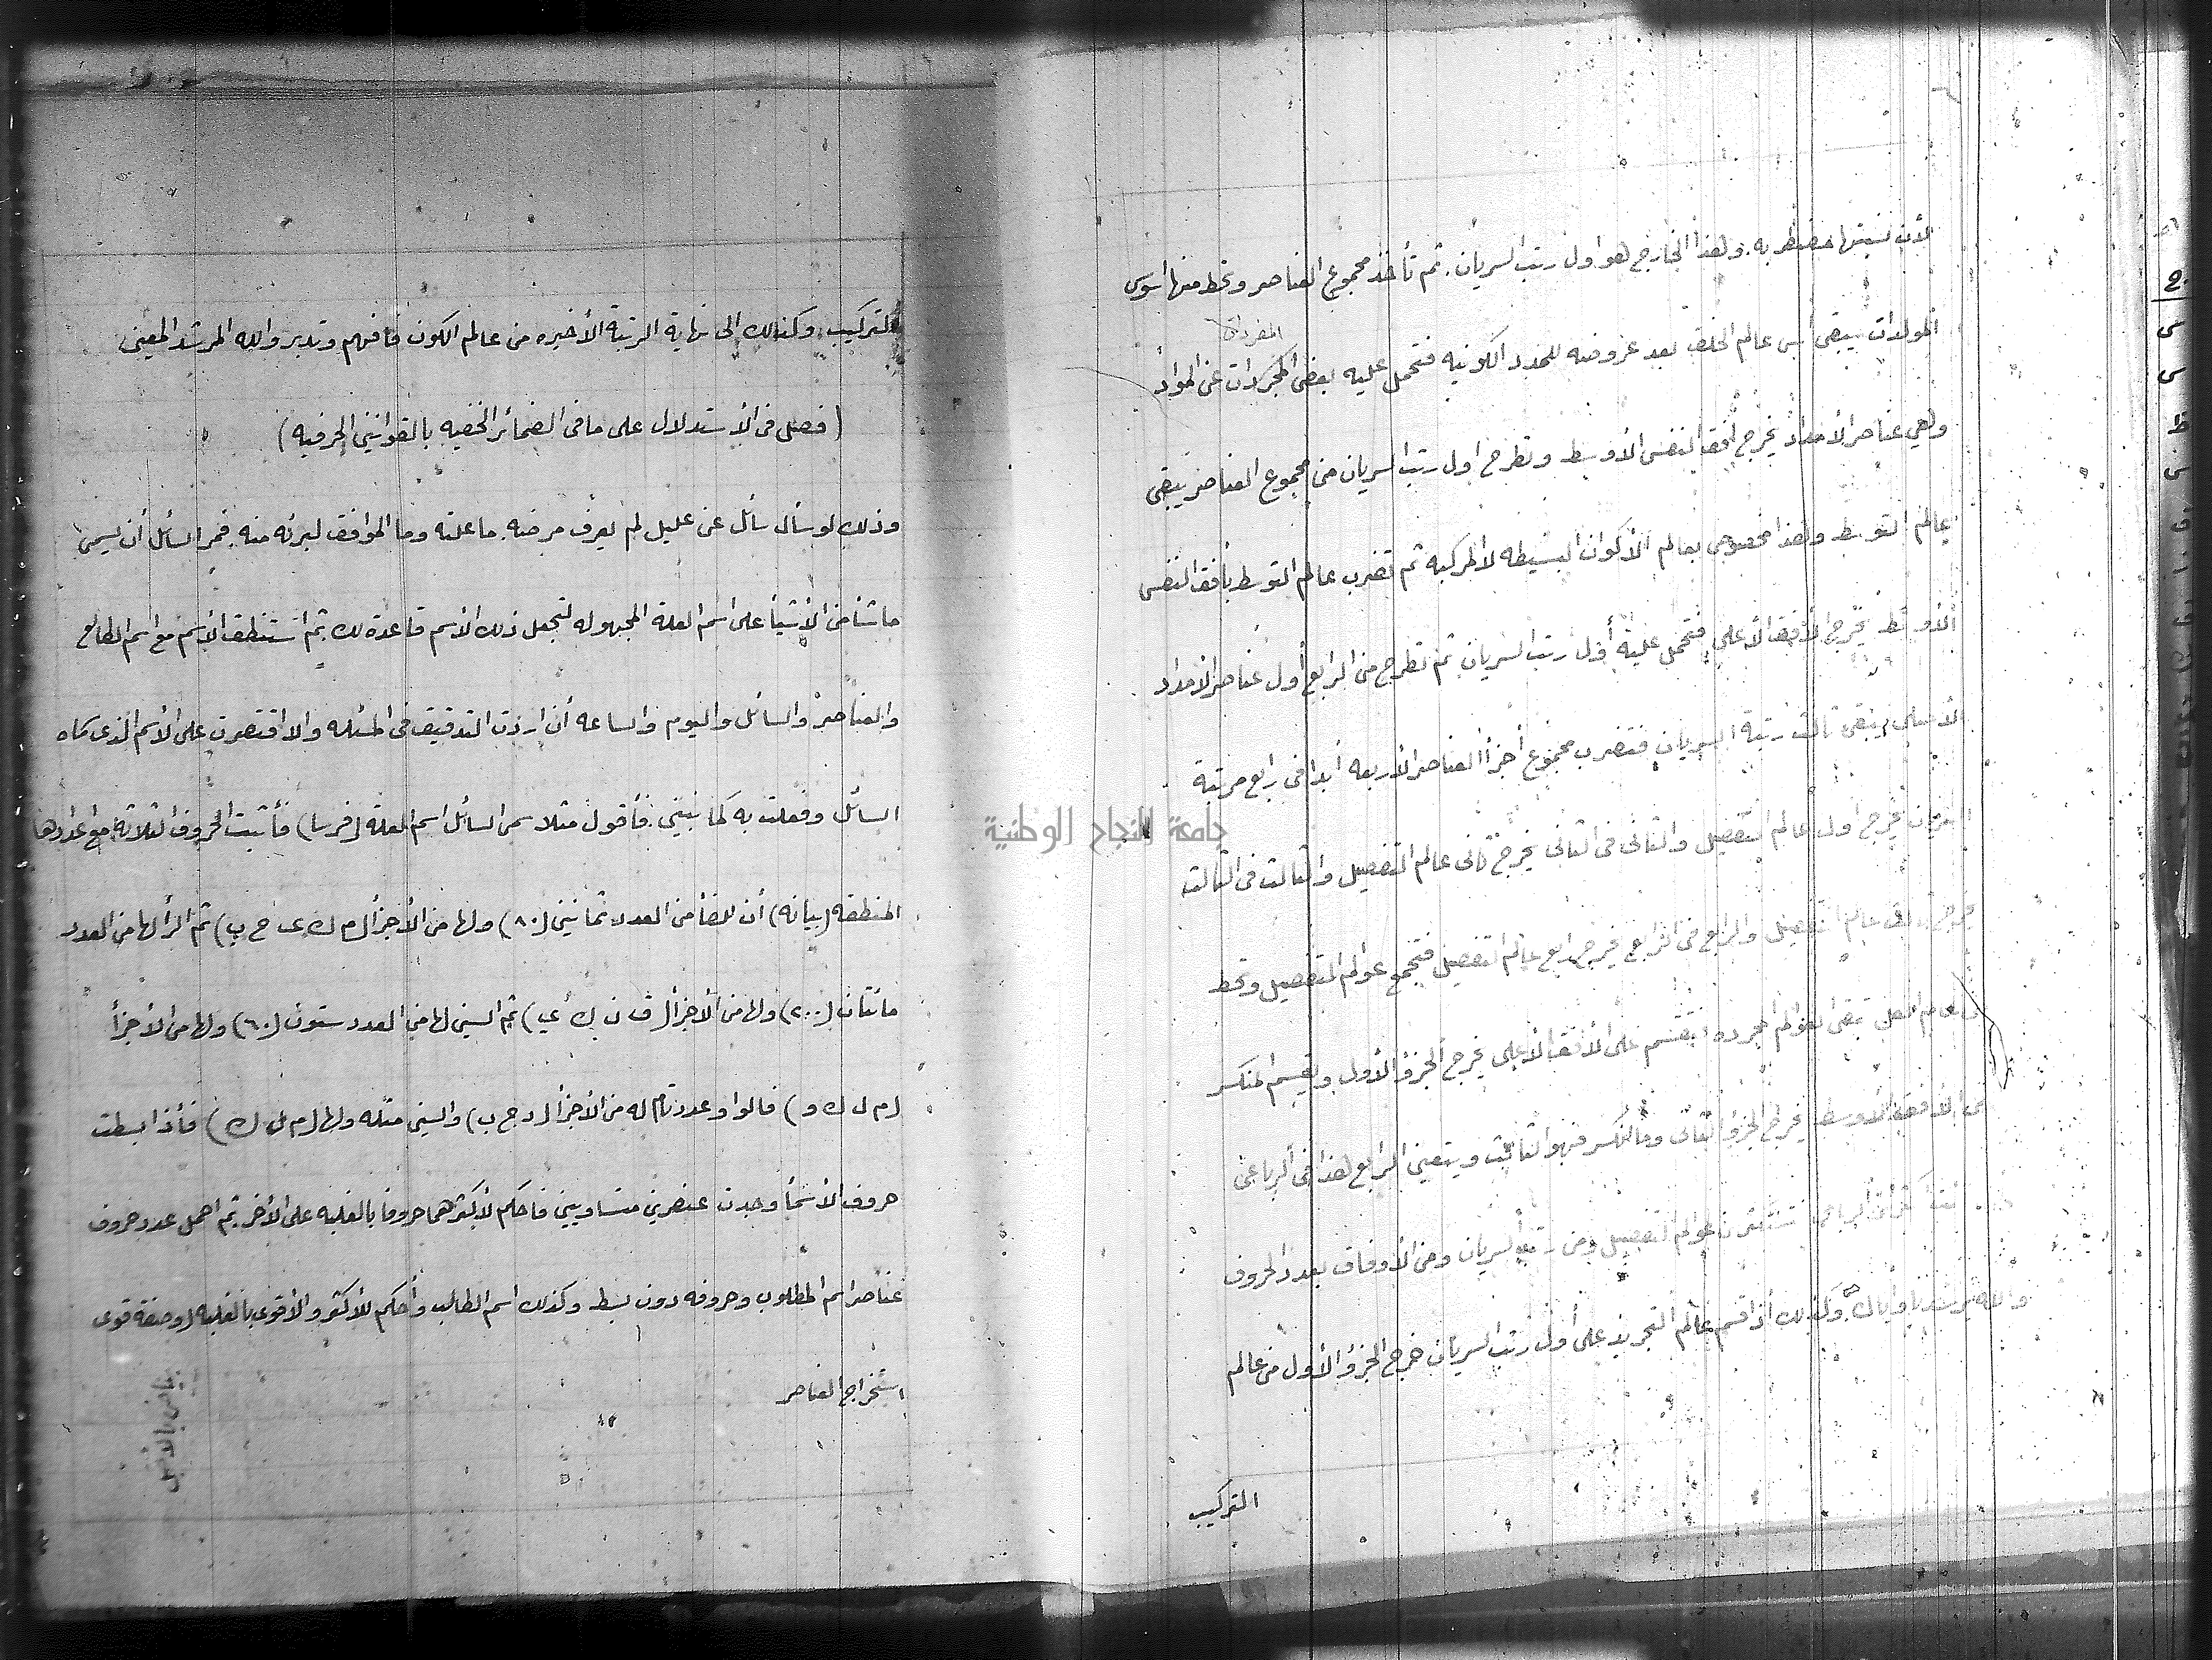 لأن نسبتها مضطربه. ولهذا الخارج هو اول رتب السريان. ثم تأخذ مجموع العناصر وتحط منها اسوس
المفردات
المولدات يبقى أس عالم الخلق بعد عروضه للمدد الكونيه فتحمل عليه بعض المجردات عن المواد
وهي عناصر الأمداد يخرج أفق النفس الأوسط وتطرح اول رتب السريان من مجموع العناصر يبقى
عالم التوسط وهذا مخصوص بعالم الأكوان البسيطه لا المركبه ثم تضرب عالم التوسط بأفق النفس
الأوسط يخرج الأفق الأعلى فتحمل عليه أول رتب السريان ثم تطرح من الرابع أول عناصر الأمداد
الأصلى يبقى ثالث رتبة السريان فتضرب مجموع أجزأ العناصر الأربعه أبدا فى رابع مرتبة
السريان يخرج اول عالم التفصيل والثانى فى الثانى يخرج ثانى عالم التفصيل والثالث فى الثالث
يخرج ثالث عالم التفصيل والرابع فى الرابع يخرج رابع عالم التفصيل فتجمع عوالم التفصيل وتحط
من عالم الكل تبقى العوالم المجرده فتقسم على الأفق الأعلى يخرج الجزؤ الأول ويقسم المنكسر
على الأفق الأوسط يخرج الجزؤ الثانى وما انكسر فهو الثالث ويتعين الرابع هذا فى الرباعى
عوالم التفصيل ومن رتب السريان ومن الأوفاق بعدد الحروف
والله يرشدنا وأياك وكذلك أذا قسم عالم التجريد على أول رتب السريان خرج الجزؤ الأول من عالم
التركيب
جامعة النجاح الوطنية
التركيب. وكذلك الى نهاية الرتبة الأخيره من عالم الكون فافهم وتدبر والله المرشد المعين
(فصل فى الأستدلال على ما فى الضمائر الخفيه بالقوانين الحرفيه)
وذلك لو سأل سائل عن عليل لم يعرف مرضه. ما علته وما الموافق لبرئه منه. فمر السائل أن يسمى
ما شأ من الأشيأ على اسم العلة المجهوله لتجعل ذلك الأسم قاعدة لك ثم استنطق الأسم مع اسم الطالع
والعناصر والسائل واليوم والساعه أن اردت التدقيق فى المسئله والا اقتصرت على الأسم الذى سماه
السائل وفعلت به كما نبين. فأقول مثلا سمى السائل اسم العلة (فرسا) فأثبت الحروف الثلاثه مع اعدادها
المنطقه (بيانه) أن للفأ من العدد ثمانين (٨٠) ولها من الأجزأ (م ك ى ح ب) ثم الرأ لها من العدد
مائتان (٢٠٠) ولها من الأجزأ (ق ن ك ى) ثم السين لها من العدد ستون (٦٠) ولها من الأجزأ
(م ل ك و) فالواو عدد تام له من الأجزأ (د ج ب) والسين مثله ولها (م ل ك) فأذا بسطت
حروف الأسمأ وجدت عنصرين متساويين فاحكم لأكثرهما حروفا بالغلبه على الأخر. ثم احمل عدد حروف
عناصر اسم المطلوب وحروفه دون بسط وكذلك اسم الطالب وأحكم للأكثر والأقوى بالغلبه (وصفة قوى
استخراج العناصر